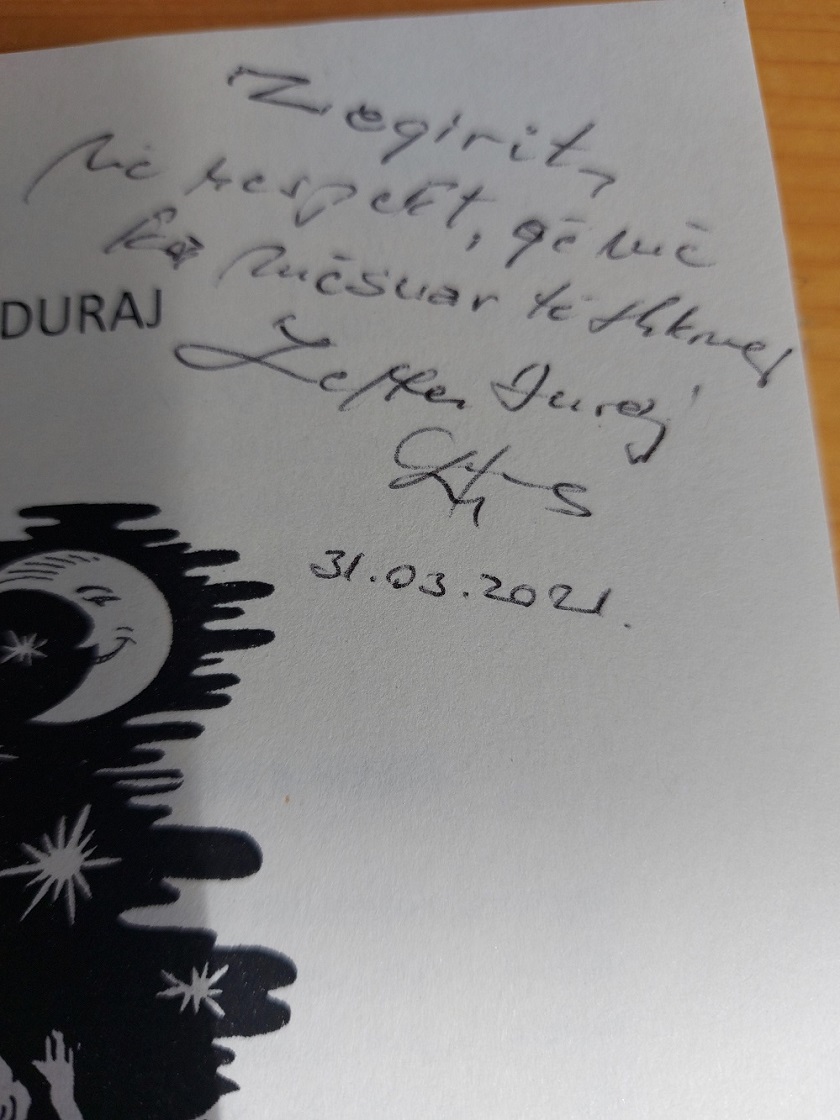 Zeqirit,
Me respekt, që më
ka mësuar të shkruaj
DURAJ
Lefter Duraj
31.03.2021.